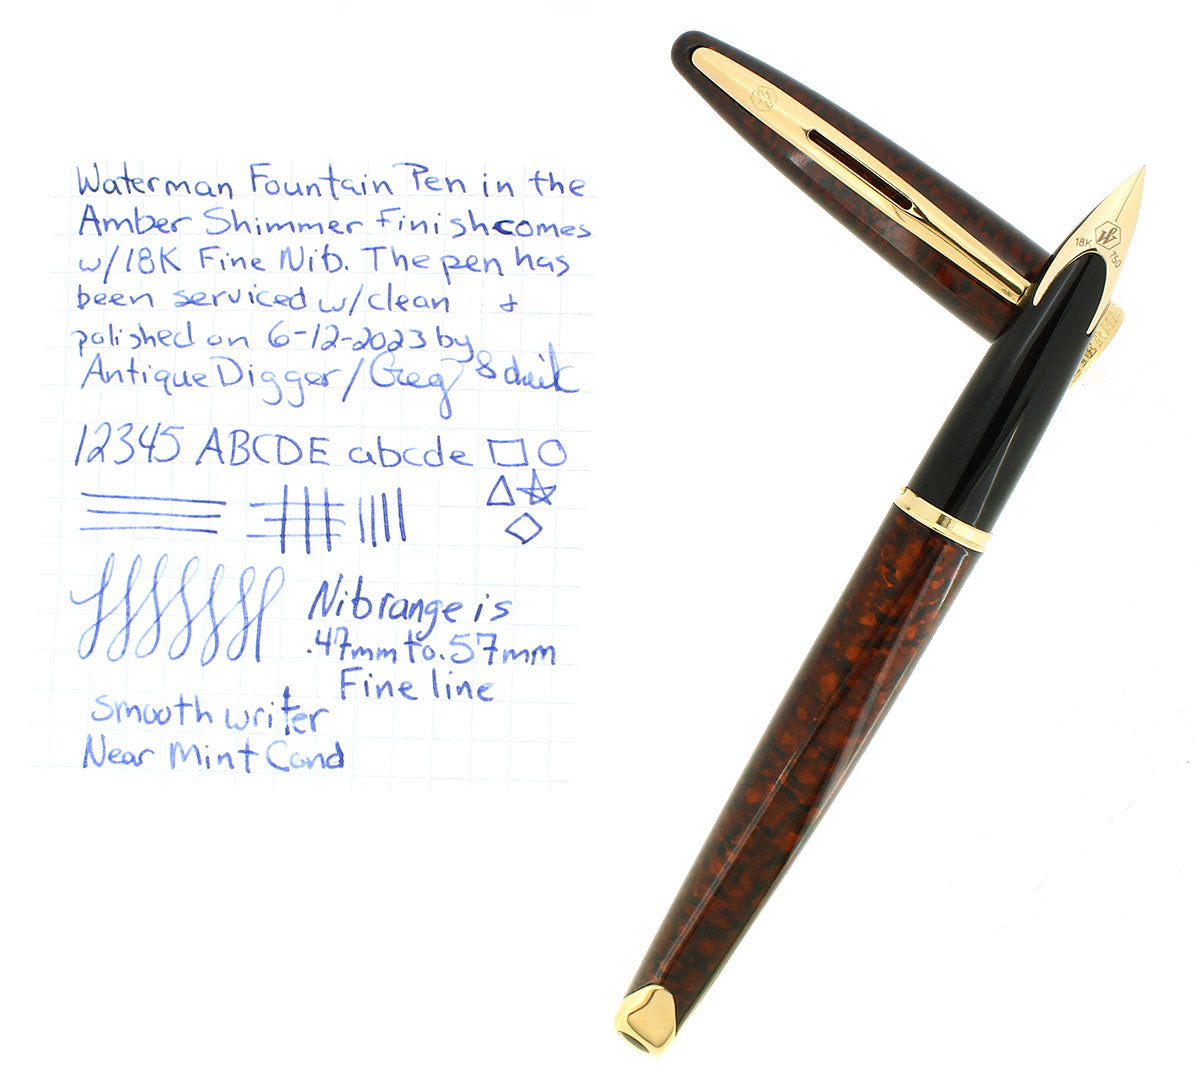 Waterman Fountain Pen in the
Amber Shimmer Finish comes
w/18K Fine Nib. The pen has
been serviced w/clean &
polished on 6-12-2023 by
Antique Digger/Greg
12345 ABCDE abcde
Nib range is
.47mm to .57mm
Fine line
smooth writer
Near Mint Cond
18K
750